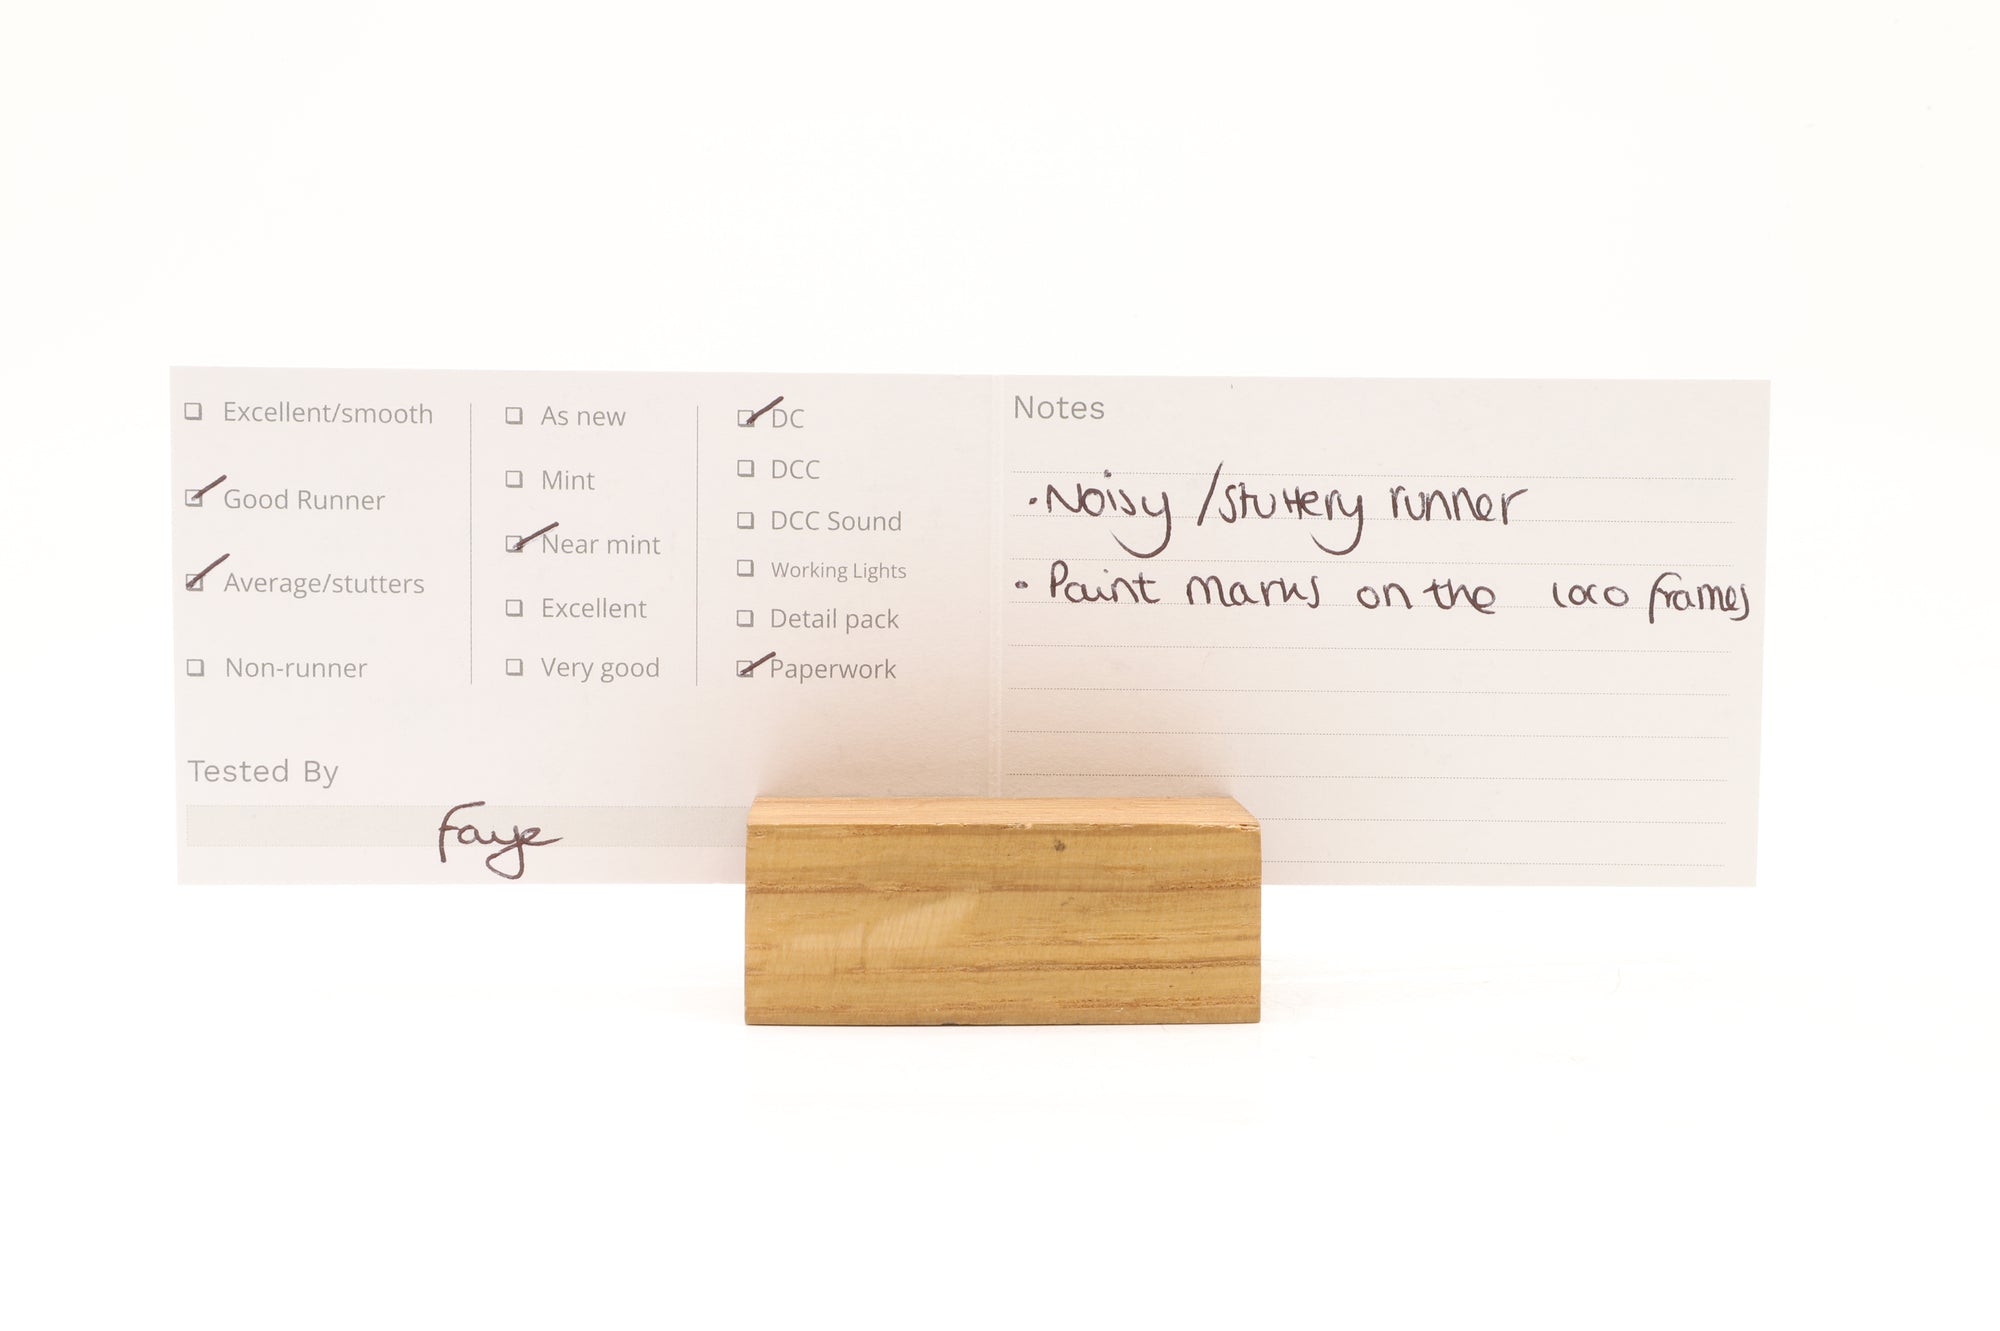 ☐ Excellent/smooth
☑ Good Runner
☑ Average/stutters
☐ Non-runner
☐ As new
☐ Mint
☑ Near mint
☐ Excellent
☐ Very good
☑ DC
☐ DCC
☐ DCC Sound
☐ Working Lights
☐ Detail pack
☑ Paperwork
Tested By
Faye
Notes
• Noisy / Stuttery runner
• Paint marks on the loco frames